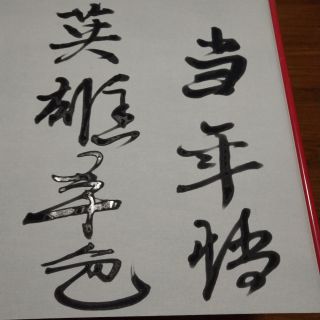 当年情
英雄本色